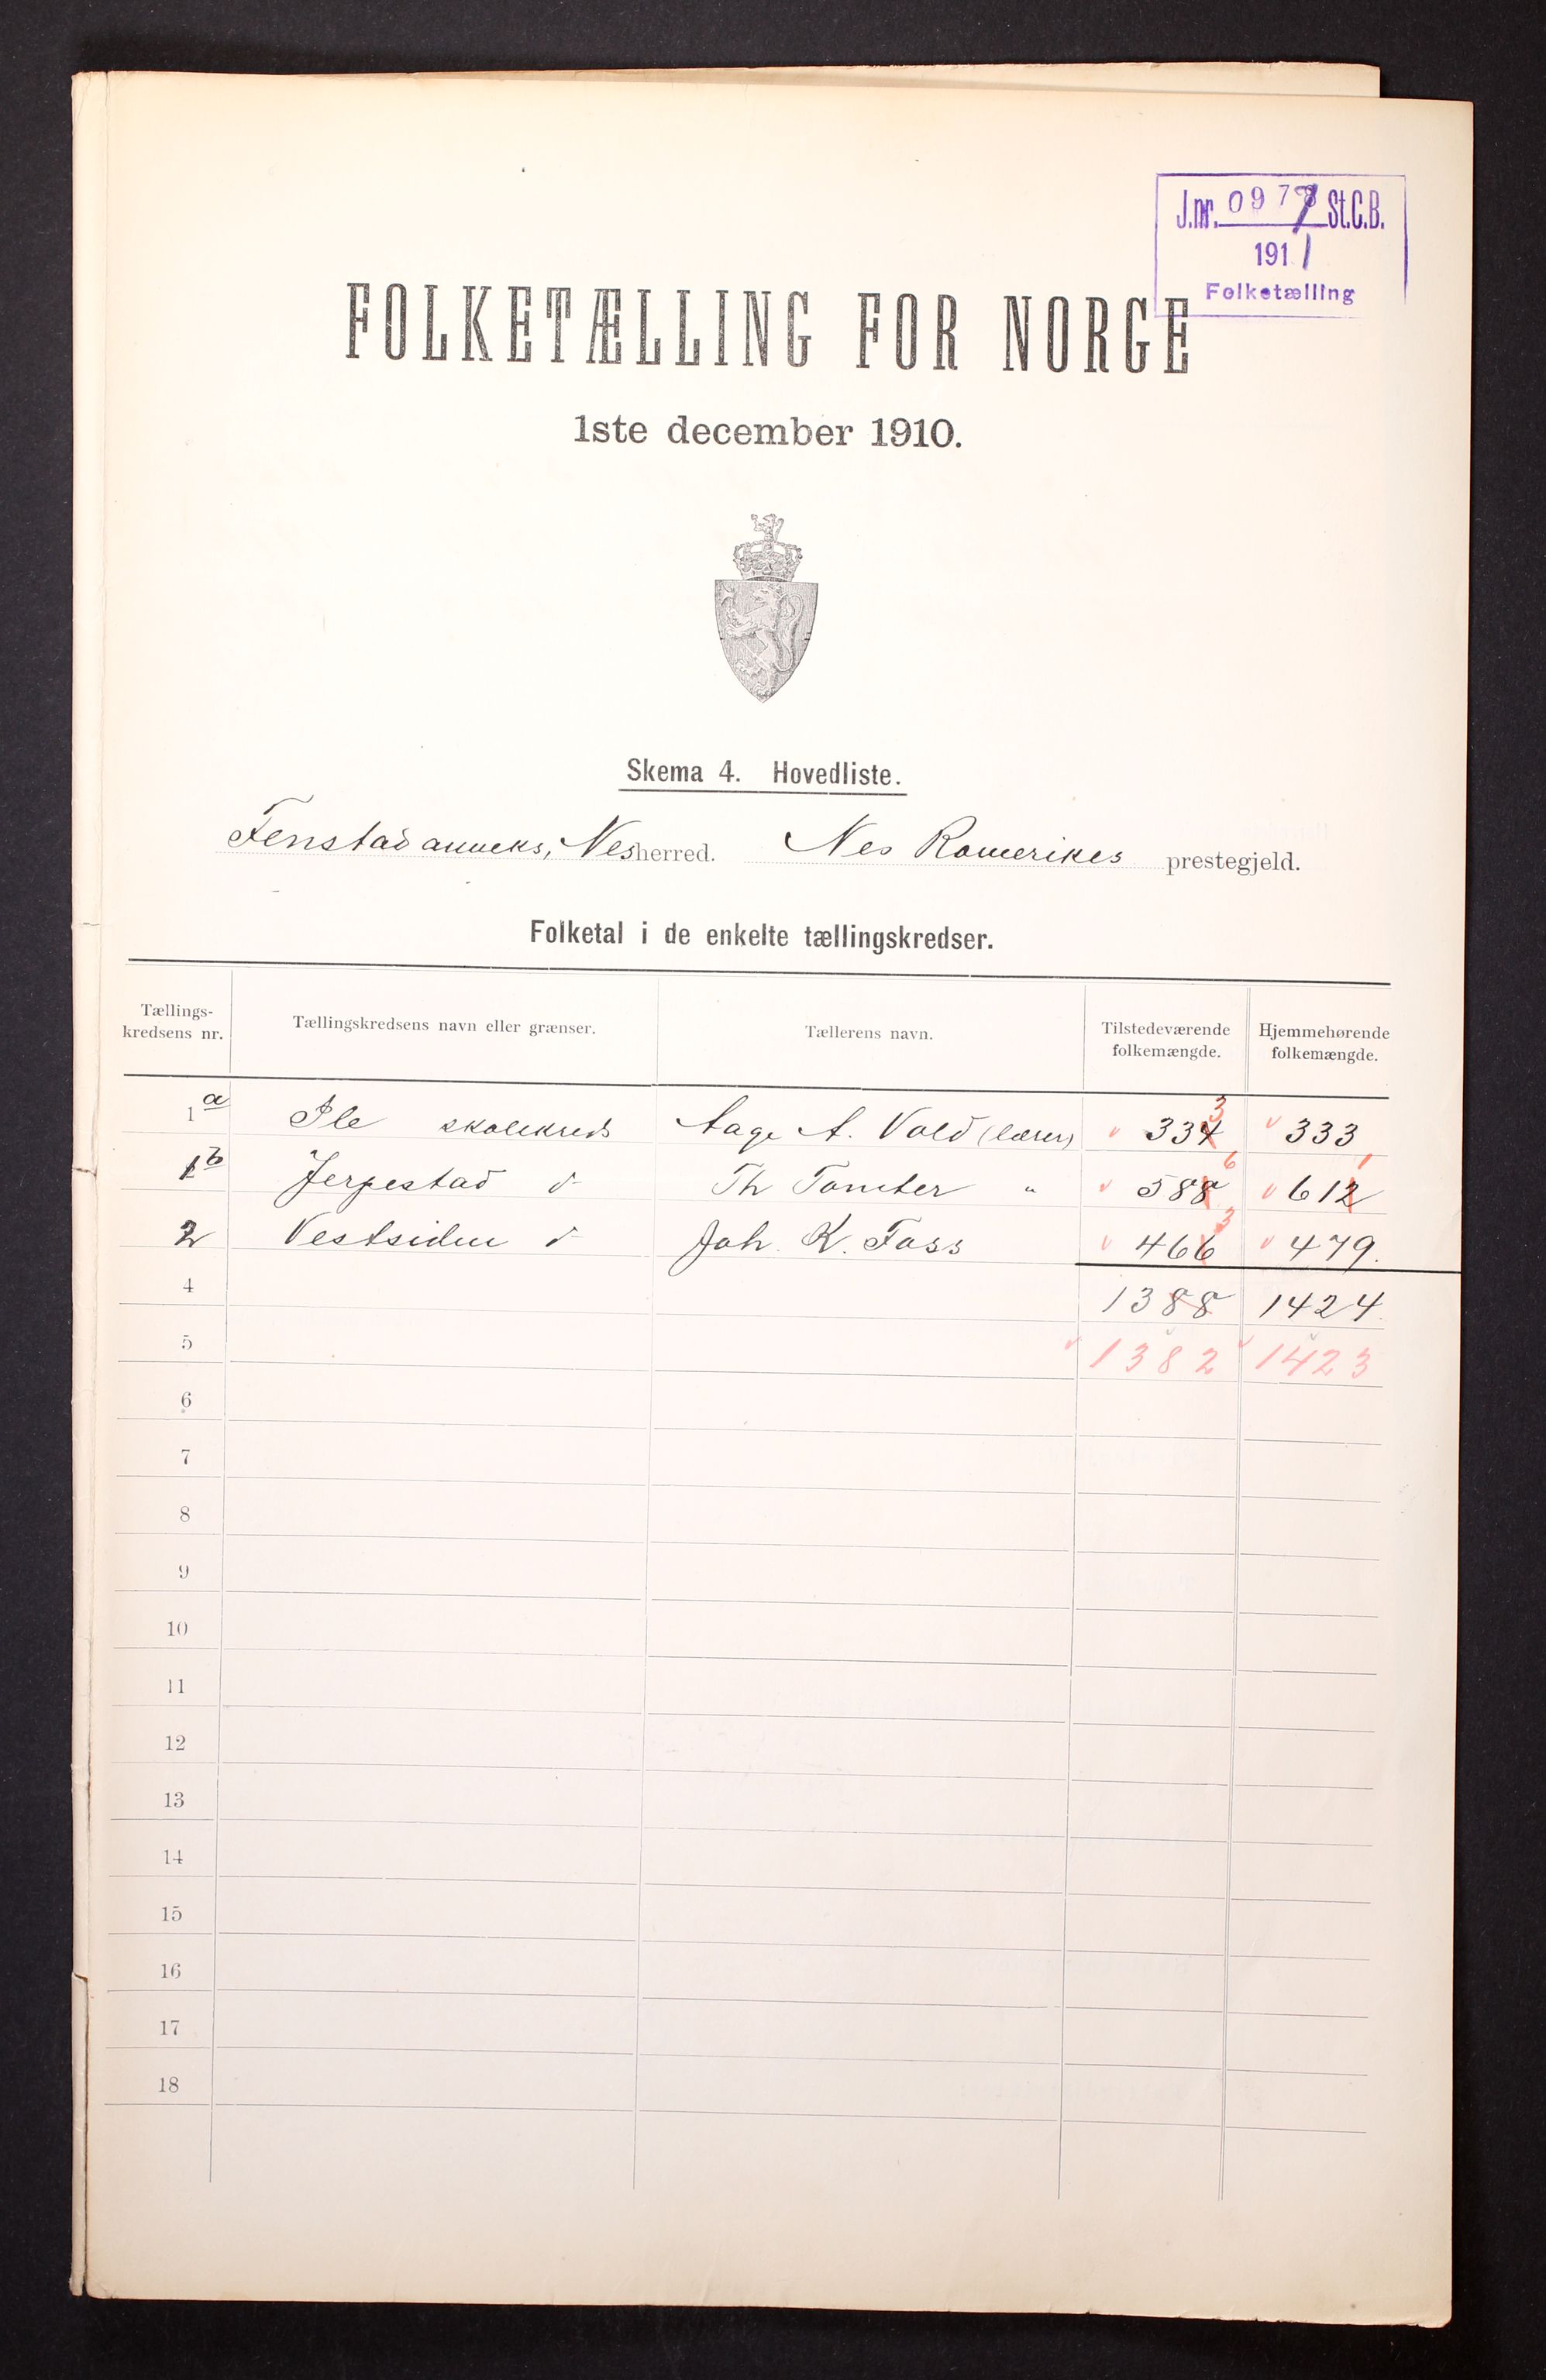 J.nr. 0977 St.C.B.
1911
Folketælling
FOLKETÆLLING FOR NORGE
1ste december 1910.
Skema 4. Hovedliste.
Fenstad anneks, Nes herred. Nes Romerikes prestegjeld.
Folketal i de enkelte tællingskredser.
Tællings-kredsens nr. Tællingskredsens navn eller grænser. Tællerens navn. Tilstedeværende folkemængde. Hjemmehørende folkemængde.
1a Ile skolekreds Aage A. Vold (lærer) 334 3 333
1b Jerpestad d Th Tomter " 588 6 612 1
2 Vestsiden d Joh. K. Foss 466 3 479.
4 1388 1424.
5 1382 1423
6
7
8
9
10
11
12
13
14
15
16
17
18